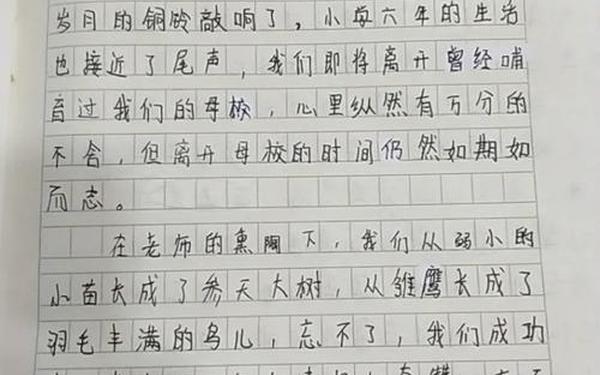 岁月的铜铃敲响了，小学六年的生活
也接近了尾声，我们即将离开曾经哺
育过我们的母校，心里纵然有万分的
不舍，但离开母校的时间仍然如期如
而志。
在老师的熏陶下，我们从弱小的
小苗长成了参天大树，从雏鹰长成了
羽毛丰满的鸟儿，忘不了，我们成功